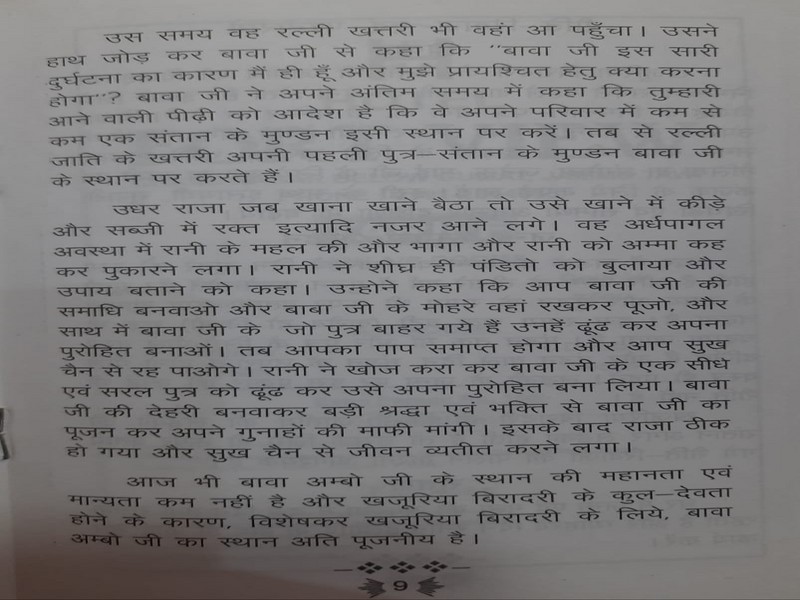 उस समय वह रल्ली खत्तरी भी वहां आ पहुँचा। उसने
हाथ जोड़ कर बावा जी से कहा कि "बावा जी इस सारी
दुर्घटना का कारण मैं ही हूँ और मुझे प्रायश्चित हेतु क्या करना
होगा"? बावा जी ने अपने अंतिम समय में कहा कि तुम्हारी
आने वाली पीढ़ी को आदेश है कि वे अपने परिवार में कम से
कम एक संतान के मुण्डन इसी स्थान पर करें। तब से रल्ली
जाति के खत्तरी अपनी पहली पुत्र–संतान के मुण्डन बावा जी
के स्थान पर करते हैं।
उधर राजा जब खाना खाने बैठा तो उसे खाने में कीड़े
और सब्जी में रक्त इत्यादि नजर आने लगे। वह अर्धपागल
अवस्था में रानी के महल की और भागा और रानी को अम्मा कह
कर पुकारने लगा। रानी ने शीघ्र ही पंडितो को बुलाया और
उपाय बताने को कहा। उन्होने कहा कि आप बावा जी की
समाधि बनवाओ और बाबा जी के मोहरे वहां रखकर पूजो, और
साथ में बावा जी के जो पुत्र बाहर गये हैं उनहें ढूंढ कर अपना
पुरोहित बनाओं। तब आपका पाप समाप्त होगा और आप सुख
चैन से रह पाओगे। रानी ने खोज करा कर बावा जी के एक सीधे
एवं सरल पुत्र को ढूंढ कर उसे अपना पुरोहित बना लिया। बावा
जी की देहरी बनवाकर बड़ी श्रद्धा एवं भक्ति से बावा जी का
पूजन कर अपने गुनाहों की माफी मांगी। इसके बाद राजा ठीक
हो गया और सुख चैन से जीवन व्यतीत करने लगा।
आज भी बावा अम्बो जी के स्थान की महानता एवं
मान्यता कम नहीं है और खजूरिया बिरादरी के कुल–देवता
होने के कारण, विशेषकर खजूरिया बिरादरी के लिये, बावा
अम्बो जी का स्थान अति पूजनीय है।
9